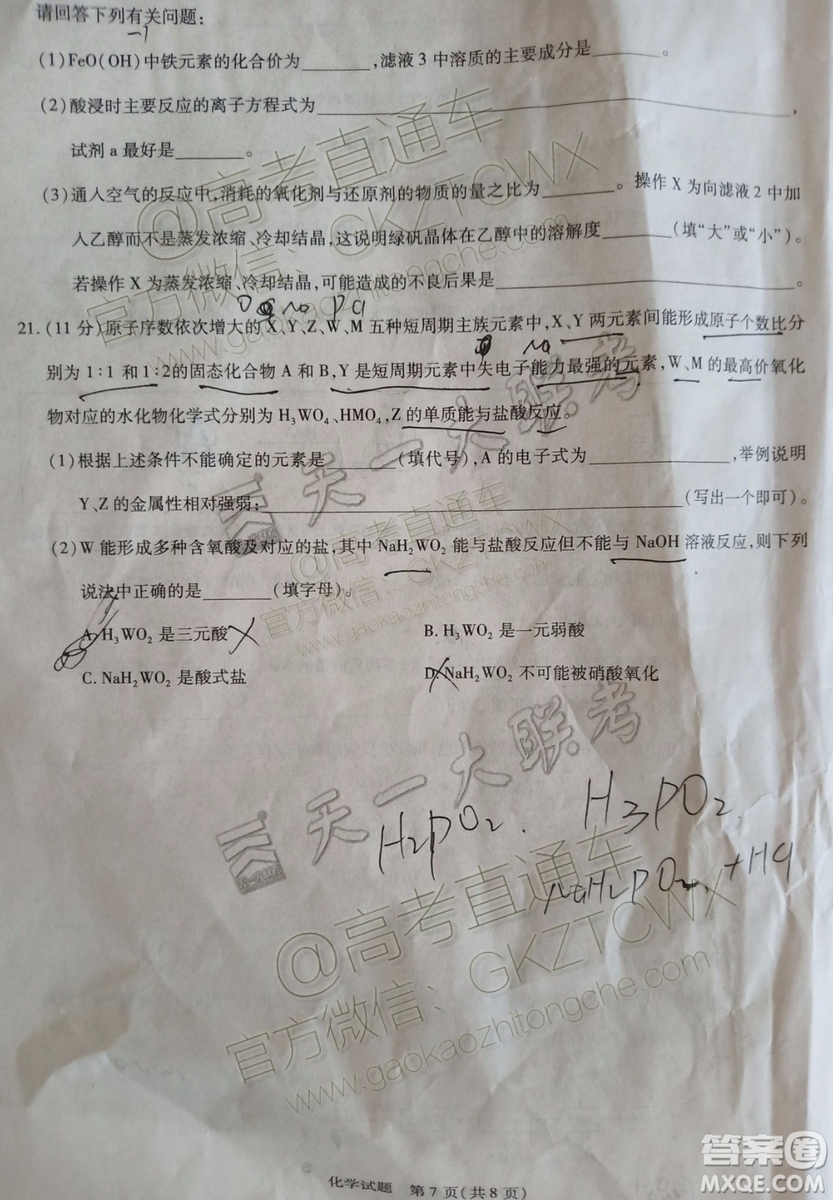 请回答下列有关问题:
(1)FeO(OH)中铁元素的化合价为______,滤液3中溶质的主要成分是______。
(2)酸浸时主要反应的离子方程式为______,
试剂a最好是______。
(3)通入空气的反应中,消耗的氧化剂与还原剂的物质的量之比为______。操作X为向滤液2中加
入乙醇而不是蒸发浓缩、冷却结晶,这说明绿矾晶体在乙醇中的溶解度______(填“大”或“小”)。
若操作X为蒸发浓缩、冷却结晶,可能造成的不良后果是______。
21.(11分)原子序数依次增大的X、Y、Z、W、M五种短周期主族元素中,X、Y两元素间能形成原子个数比分
别为1:1和1:2的固态化合物A和B,Y是短周期元素中失电子能力最强的元素,W、M的最高价氧化
物对应的水化物化学式分别为H₃WO₄、HMO₄,Z的单质能与盐酸反应。
(1)根据上述条件不能确定的元素是______(填代号),A的电子式为______,举例说明
Y、Z的金属性相对强弱:______(写出一个即可)。
(2)W能形成多种含氧酸及对应的盐,其中NaH₂WO₂能与盐酸反应但不能与NaOH溶液反应,则下列
说法中正确的是______(填字母)。
A.H₃WO₂是三元酸 B.H₃WO₂是一元弱酸
C.NaH₂WO₂是酸式盐 D.NaH₂WO₂不可能被硝酸氧化
天一大联考
H₂PO₂. H₃PO₂.
NaH₂PO₂. +HCl
天一大联考
@高考直通车
官方微信:GKZTCWX
www.gaokaozhitongche.com
@高考直通车
官方微信:GKZTCWX
www.gaokaozhitongche.com
化学试题 第7页(共8页)
答案圈
MXQE.COM